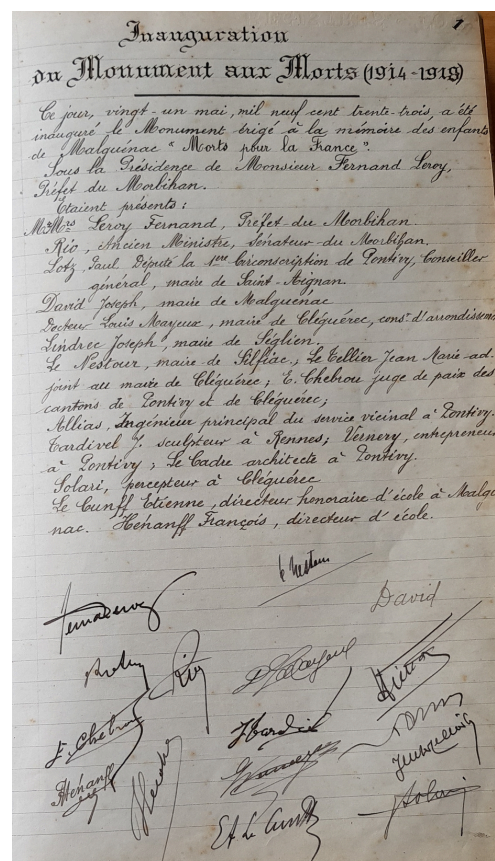 1
Inauguration
du Monument aux Morts (1914-1918)
Ce jour, vingt-un mai, mil neuf cent trente-trois, a été
inauguré le Monument érigé à la mémoire des enfants
de Malguénac "Morts pour la France".
Sous la Présidence de Monsieur Fernand Leroy,
Préfet du Morbihan.
Etaient présents :
M.Mrs Leroy Fernand, Préfet du Morbihan
Rio, Ancien Ministre, sénateur du Morbihan.
Lotz Paul Député la 1ère Circonscription de Pontivy, Conseiller
général, maire de Saint-Aignan.
David Joseph, maire de Malguénac
Docteur Louis Mayeux, maire de Cléguérec, cons. d'arrondissem
Lindrec Joseph, maire de Séglien.
Le Nestour, maire de Silfiac; Le Tellier Jean Marie ad-
joint au maire de Cléguérec; E. Chebrou juge de paix des
cantons de Pontivy et de Cléguérec;
Allias, Ingénieur principal du service vicinal à Pontivy.
Tardivel J. sculpteur à Rennes; Vernery, entrepreneur
à Pontivy; Le Cadre architecte à Pontivy.
Solari, percepteur à Cléguérec
Le Cunff Etienne, directeur honoraire d'école à Malgué
nac. Hénanff François, directeur d'école.
le Nestour
David
Rio
E. Chebrou
Hénanff
Et Le Cunff
Solari